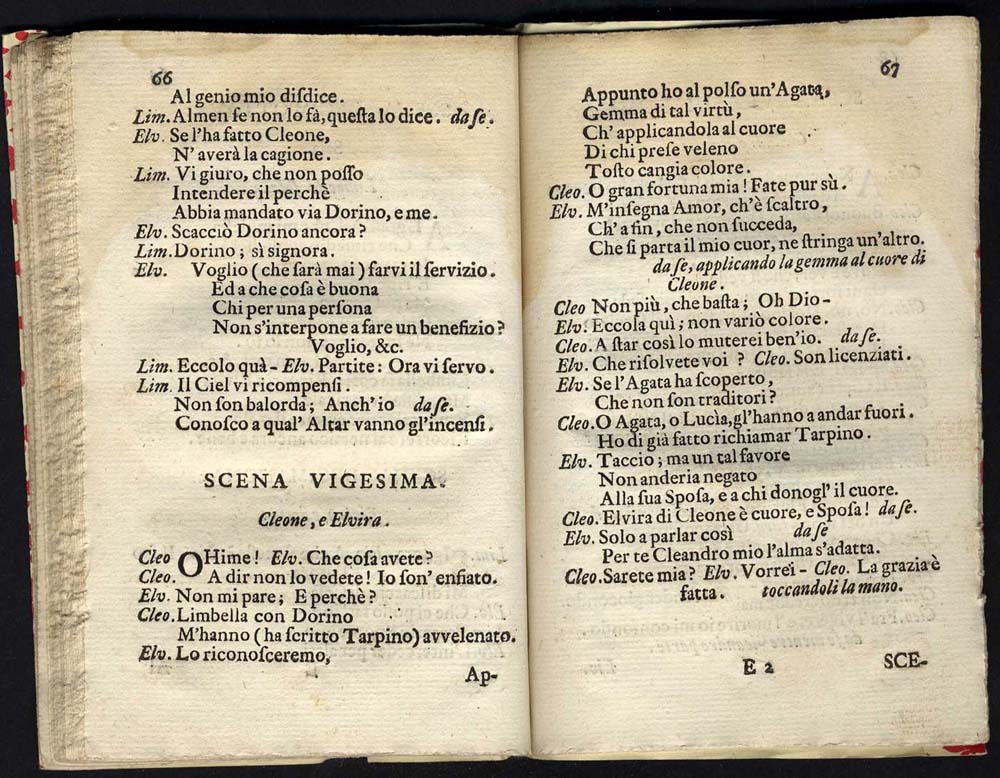 66
Al genio mio diſdice.
Lim. Almen ſe non lo fà, queſta lo dice. da ſe.
Elv. Se l'ha fatto Cleone,
N' averà la cagione.
Lim. Vi giuro, che non poſſo
Intendere il perchè
Abbia mandato via Dorino, e me.
Elv. Scacciò Dorino ancora?
Lim. Dorino; sì signora.
Elv. Voglio (che ſarà mai) farvi il ſervizio.
Ed a che coſa è buona
Chi per una perſona
Non s'interpone a fare un benefizio?
Voglio, &c.
Lim. Eccolo quà- Elv. Partite: Ora vi ſervo.
Lim. Il Ciel vi ricompenſi.
Non ſon balorda; Anch' io da ſe.
Conoſco a qual' Altar vanno gl'incenſi.
SCENA VIGESIMA.
Cleone, e Elvira.
Cleo OHime! Elv. Che coſa avete?
Cleo. A dir non lo vedete! Io ſon' enfiato.
Elv. Non mi pare; E perchè?
Cleo. Limbella con Dorino
M'hanno (ha ſcritto Tarpino) avvelenato.
Elv. Lo riconoſceremo,
Ap-
67
Appunto ho al polſo un'Agata,
Gemma di tal virtù,
Ch' applicandola al cuore
Di chi preſe veleno
Toſto cangia colore.
Cleo. O gran fortuna mia! Fate pur sù.
Elv. M'inſegna Amor, ch'è ſcaltro,
Ch' a fin, che non ſucceda,
Che ſi parta il mio cuor, ne ſtringa un'altro.
da ſe, applicando la gemma al cuore di
Cleone.
Cleo Non più, che baſta; Oh Dio-
Elv. Eccola quì; non variò colore.
Cleo. A ſtar così lo muterei ben'io. da ſe.
Elv. Che riſolvete voi? Cleo. Son licenziati.
Elv. Se l'Agata ha ſcoperto,
Che non ſon traditori?
Cleo. O Agata, o Lucìa, gl'hanno a andar fuori.
Ho di già fatto richiamar Tarpino.
Elv. Taccio; ma un tal favore
Non anderia negato
Alla ſua Spoſa, e a chi donogl' il cuore.
Cleo. Elvira di Cleone è cuore, e Spoſa! da ſe.
Elv. Solo a parlar così da ſe
Per te Cleandro mio l'alma s'adatta.
Cleo. Sarete mia? Elv. Vorrei- Cleo. La grazia è
fatta. toccandoli la mano.
E 2 SCE-